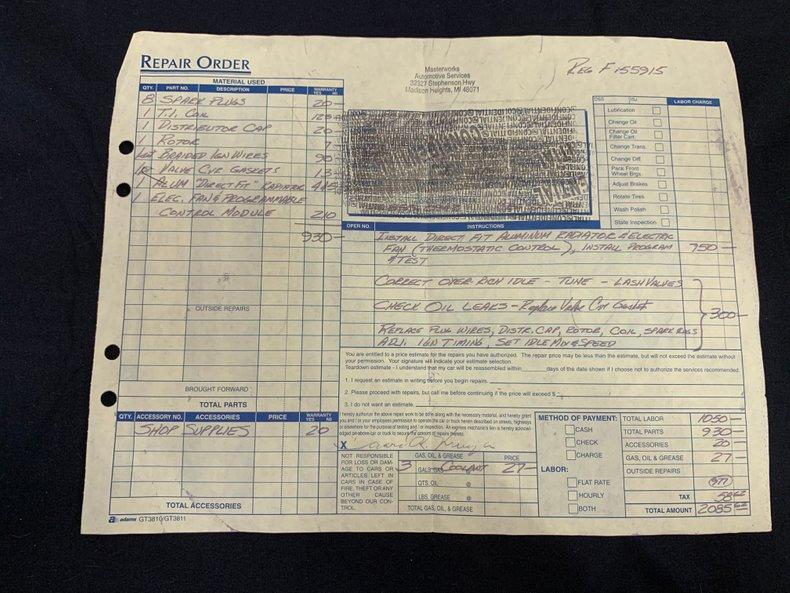 REPAIR ORDER
Masterworks
Automotive Services
32327 Stephenson Hwy
Madison Heights, MI 48071
REG F155915
MATERIAL USED
QTY. PART NO. DESCRIPTION PRICE WARRANTY YES NO
8 SPARK PLUGS 20-
1 T.I. COIL
1 DISTRIBUTOR CAP 20-
1 ROTOR 7-
BRAIDED IGN WIRES 90-
VALVE CVR GASKETS 13-
1 ALUM "DIRECT FIT" RADIATOR
1 ELEC. FAN & PROGRAMMABLE
CONTROL MODULE 210
930-
OUTSIDE REPAIRS
BROUGHT FORWARD
TOTAL PARTS
LABOR CHARGE
Lubrication
Change Oil
Change Oil
Filter Cart.
Change Trans.
Change Diff.
Pack Front
Wheel Brgs.
Adjust Brakes
Rotate Tires
Wash Polish
State Inspection
CONFIDENTIAL
OPER NO. INSTRUCTIONS
INSTALL DIRECT FIT ALUMINUM RADIATOR & ELECTRIC
FAN (THERMOSTATIC CONTROL), INSTALL PROGRAM 750-
& TEST
CORRECT OVER RICH IDLE - TUNE - LASH VALVES
CHECK OIL LEAKS - Replace Valve Cvr Gasket 300-
REPLACE PLUG WIRES, DISTR. CAP, ROTOR, COIL, SPARK PLUGS
ADJ. IGN TIMING, SET IDLE MIX & SPEED
You are entitled to a price estimate for the repairs you have authorized. The repair price may be less than the estimate, but will not exceed the estimate without
your permission. Your signature will indicate your estimate selection.
Teardown estimate - I understand that my car will be reassembled within days of the date shown if I choose not to authorize the services recommended.
1. I request an estimate in writing before you begin repairs.
2. Please proceed with repairs, but call me before continuing if the price will exceed $
3. I do not want an estimate
QTY. ACCESSORY NO. ACCESSORIES PRICE WARRANTY YES NO
SHOP SUPPLIES 20
TOTAL ACCESSORIES
I hereby authorize the above repair work to be done along with the necessary material, and hereby grant
you and / or your employees permission to operate the car or truck herein described on streets, highways,
or elsewhere for the purpose of testing and / or inspection. An express mechanic's lien is hereby acknowl-
edged on above car or truck to secure the amount of repairs thereto.
X
NOT RESPONSIBLE
FOR LOSS OR DAM-
AGE TO CARS OR
ARTICLES LEFT IN
CARS IN CASE OF
FIRE, THEFT OR ANY
OTHER CAUSE
BEYOND OUR CON-
TROL.
GAS, OIL & GREASE PRICE
3 GALS. COOLANT 27-
QTS. OIL @
LBS. GREASE @
TOTAL GAS, OIL, & GREASE
METHOD OF PAYMENT:
CASH
CHECK
CHARGE
LABOR:
FLAT RATE
HOURLY
BOTH
TOTAL LABOR 1050-
TOTAL PARTS 930-
ACCESSORIES 20-
GAS, OIL & GREASE 27-
OUTSIDE REPAIRS
977
TAX 58 62
TOTAL AMOUNT 2085 62
adams GT3810/GT3811